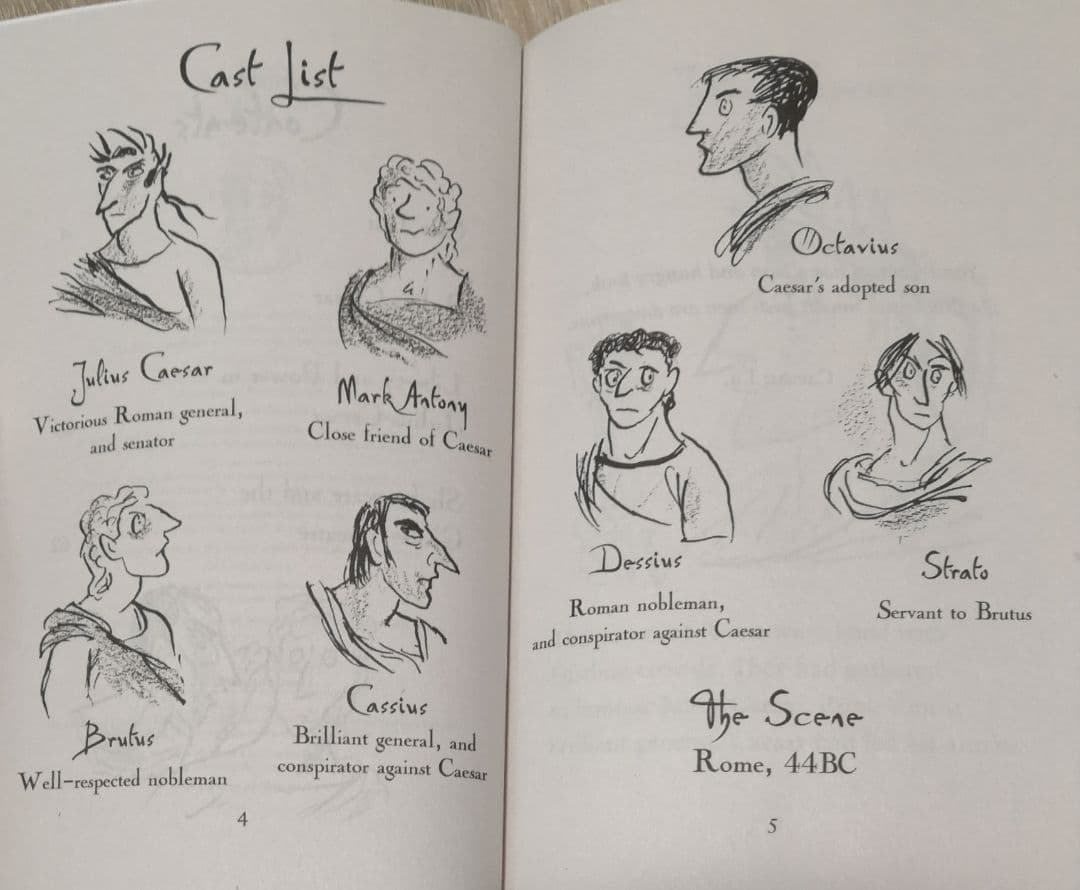 Cast List
Julius Caesar
Victorious Roman general,
and senator
Mark Antony
Close friend of Caesar
Brutus
Well-respected nobleman
Cassius
Brilliant general, and
conspirator against Caesar
4
Octavius
Caesar's adopted son
Dessius
Roman nobleman,
and conspirator against Caesar
Strato
Servant to Brutus
The Scene
Rome, 44BC
5